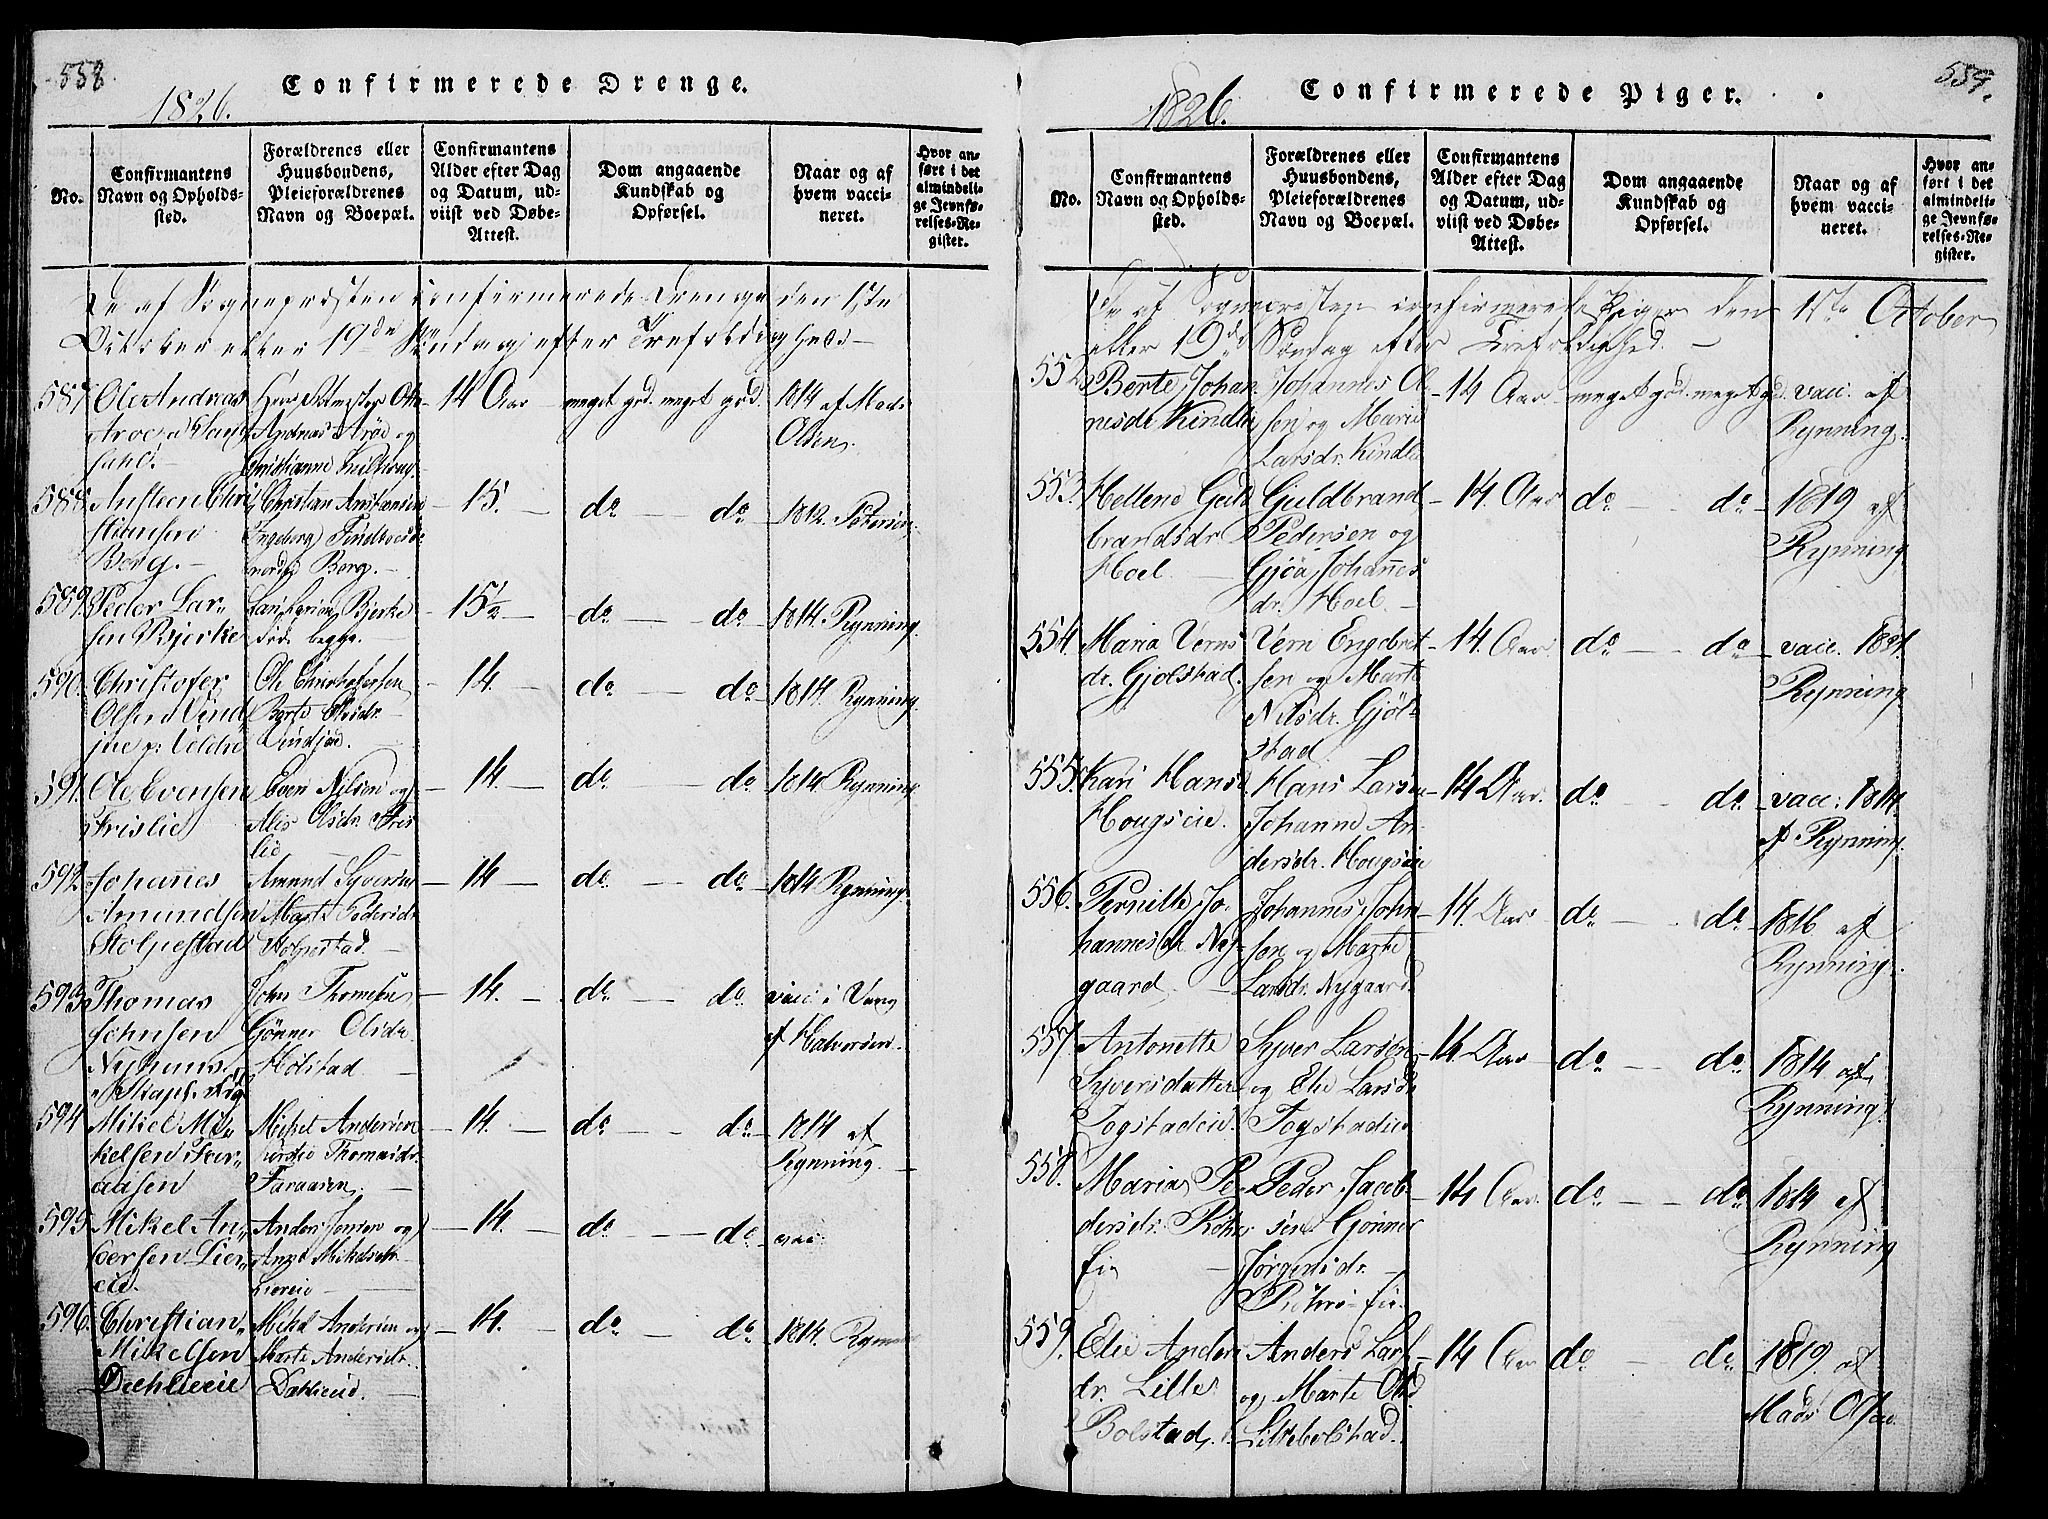 558.
1826.
Confirmerede Drenge.
No.
Confirmantens
Navn og Opholds-
sted.
Forældrenes eller
Huusbondens,
Pleieforældrenes
Navn og Boepæl.
Confirmantens
Alder efter Dag
og Datum, ud-
viist ved Døbe-
Attest.
Dom angaaende
Kundskab og
Opførsel.
Naar og af
hvem vacci-
neret.
Hvor an-
ført i det
almindeli-
ge Jevnfø-
relses-Re-
gister.
De af Sognepræsten confirmerede Drenge den 1ste
October eller 19de Søndag efter Trefoldigheds-
587
Ole Andreas
Andreas Arøe og
14 Aar
meget god. meget god.
1814 af Mads
Olsen.
588
Austeen Chri
stiansen
Borg.
Christian Austensen
Ingeborg
Borg.
15.
do do
1812. Petersen.
589
Peder Lar-
sen Bjerke
Lars Larsen Bjerke
begge.
15½
do do
1814. Rynning.
590
Christofer
Olsen Vind
jue p: Veldre
Ole Christophersen
Berte Olsdr.
Vindjue.
14.
do do
1814. Rynning.
591.
Ole Evensen
Frislie
Even Nilsen og
Alis Olsdr. Fris
lie
14.
do do
1814 Rynning
592
Johannes
Amundsen
Stolpestad
Amund Syversen
Marte Pedersdr.
Stolpestad
14
do do
1814 Rynning.
593
Thomas
Johnsen
Nyhuus
John Thomesen
Gönner Olsdr.
Holstad
14.
do do
vacc: i Vang
af Halvorsen.
594
Mikel Mi-
kelsen Far-
aasen
Mikel Andersen
Kirstie Thomasdr.
Faraasen.
14.
do do
1814 af
Rynning.
595
Mikel An-
dersen Lier-
eie.
Anders Jensen og
Anne Mikelsdr.
Liereie
14.
do do
vac:
596.
Christian
Mikelsen
Dehlieeie
Mikel Andersen og
Marte Andersdr.
Dahlieeie.
14.
do do
1814.
559.
1826.
Confirmerede Piger.
No.
Confirmantens
Navn og Opholds-
sted.
Forældrenes eller
Huusbondens,
Pleieforældrenes
Navn og Boepæl.
Confirmantens
Alder efter Dag
og Datum, ud-
viist ved Døbe-
Attest.
Dom angaaende
Kundskab og
Opførsel.
Naar og af
hvem vacci-
neret.
Hvor an-
ført i det
almindeli-
ge Jevnfø-
relses-Re-
gister.
De af Sognepræsten confirmerede Piger den 1ste October
eller 19de Søndag efter Trefoldighed.
552
Berte Johan
nesdr Kindlie
Johannes Ol-
sen og Marie
Larsdr. Kindlie
14 Aar
meget god. meget god.
vacc. af
Rynning.
553.
Hellene Guld
brandsdr
Hoel.
Guldbrand
Pedersen og
Gjöa Johannes
dr. Hoel.
14. Aar
do do
1819 af
Rynning
554.
Maria Verns
dr. Gjølstad.
Vern Engebret
sen og Marte
Nilsdr. Gjøl-
stad
14. Aar.
do do
vacc. 1821.
Rynning
555.
Kari Hansd
Hougseie.
Hans Larsen
Johanne An
dersdr. Hougseie
14 Aar.
do do.
vacc: 1814.
af Rynning.
556.
Pernille Jo
hannesdr. Ny-
gaard
Johannes John
sen og Marte
Larsdr. Nygaard.
14. Aar
do do
1816 af
Rynning.
557.
Antonette
Syversdatter
Togstadeie.
Syver Larsen
og Elie Larsdr
Togstadeie
14. Aar
do do
1814 af
Rynning.
558.
Maria Pe
dersdr.
Eie
Peder Jacob-
sen Gönner
Jørgensdr.
14 Aar.
do do
1814 af
Rynning
559.
Elie Anders
dr. Lille
Bolstad.
Anders Lars
og Marte Olsd
Lillebolstad.
14 Aar
do do
1819. af
Mads Olsen.